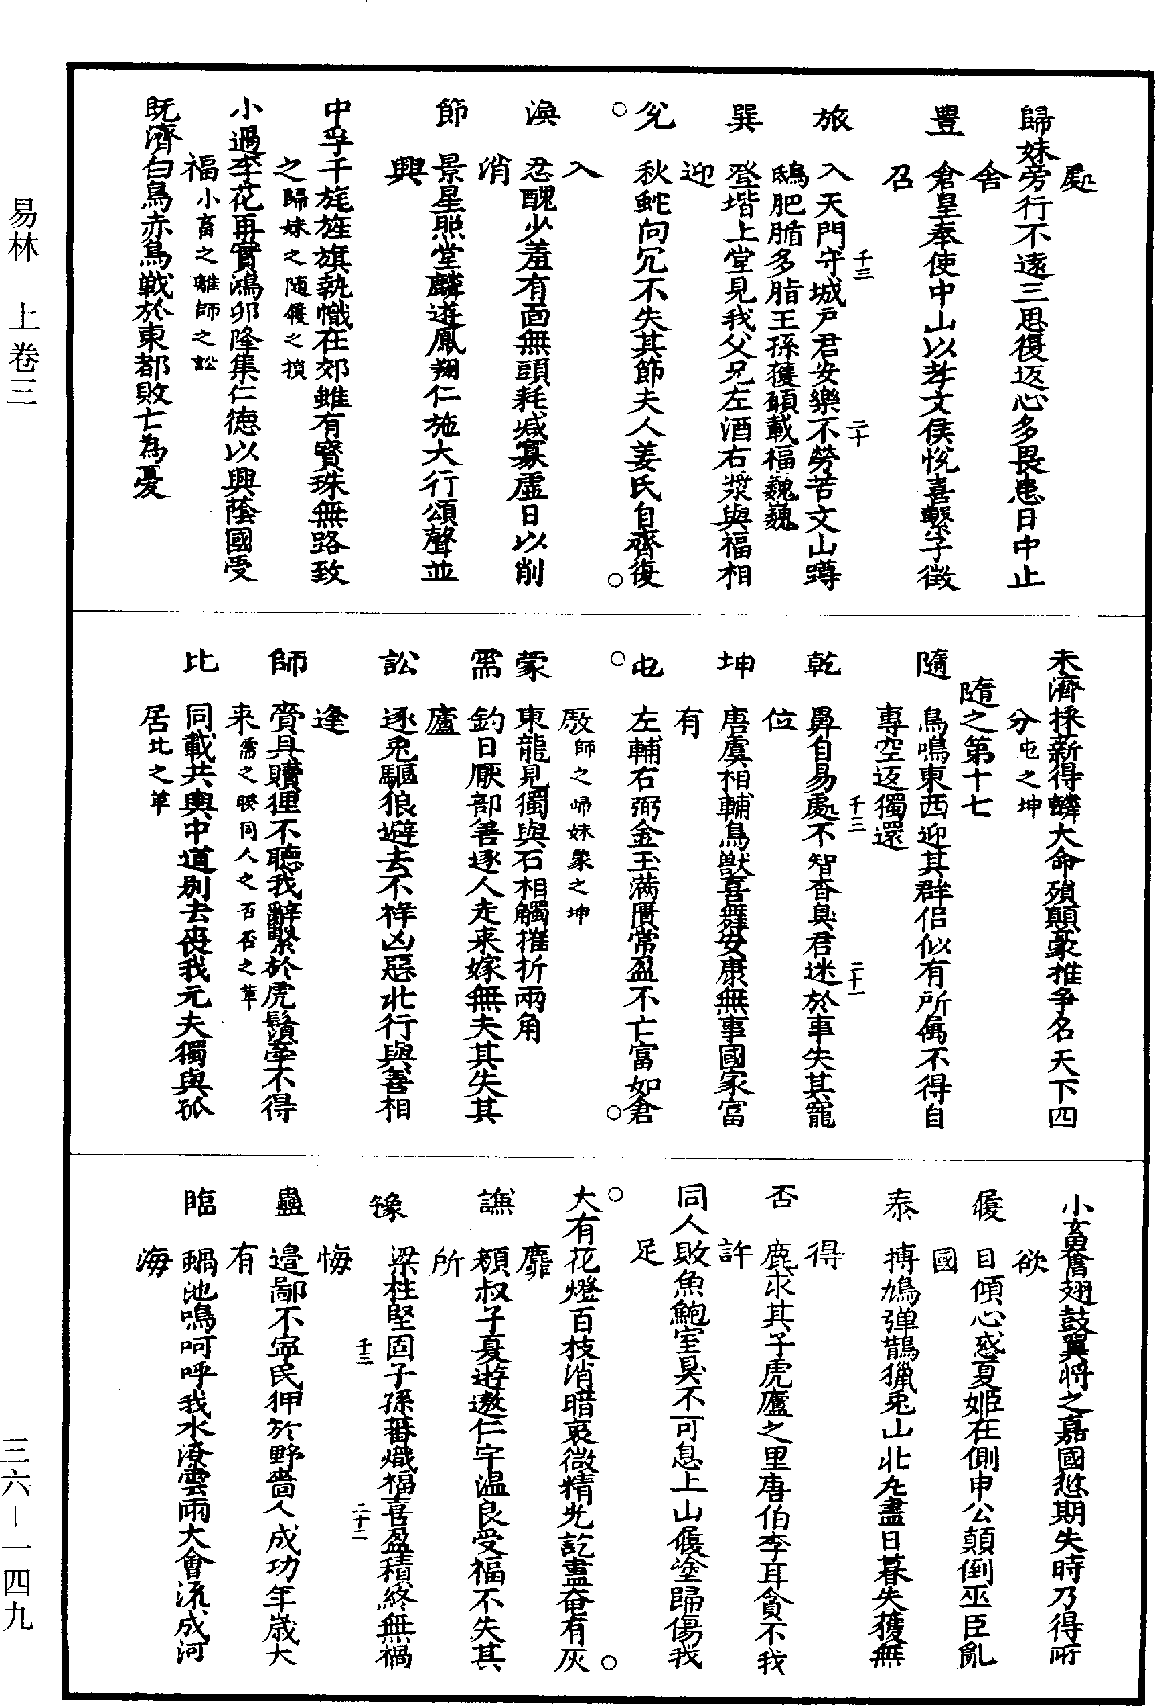 處
歸妹旁行不遠三思復返心多畏患日中止
舍
豐　倉皇奉使中山以孝文侯悅喜擊子徵
召
旅　入天門守城戶君安樂不勞苦文山蹲
鴟肥腯多脂王孫獲願載福巍巍
千三　二十
巽　登堦上堂見我父兄左酒右漿與福相
迎
○兌　秋蛇向穴不失其節夫人姜氏自齊復○
入
渙　忍醜少羞有面無頭耗減寡虛日以削
消
節　景星照堂麟遊鳳翔仁施大行頌聲並
興
中孚千旄旌旗執幟在郊雖有寶珠無路致
之歸妹之隨履之損
小過李花再實鴻卵隆集仁德以興蔭國受
福小畜之離師之訟
既濟白鳥赤烏戰於東都敗亡為憂
未濟採薪得麟大命殞顛豪推爭名天下四
分屯之坤
隨之第十七
隨　鳥鳴東西迎其群侶似有所屬不得自
專空返獨還
乾　鼻自易處不智香臭君迷於事失其寵
位
千三　二十一
坤　唐虞相輔鳥獸喜舞安康無事國家富
有
○屯　左輔右弼金玉滿匱常盈不亡富如倉○
厫師之歸妹蒙之坤
蒙　東龍見獨與石相觸摧折兩角
需　釣日厭部善逐人走來嫁無夫其失其
廬
訟　逐兎驅狼避去不祥凶惡北行與善相
逢
師　齎具贖狸不聽我辭繫於虎鬚牽不得
来需之睽同人之否否之萃
比　同載共輿中道別去喪我元夫獨與孤
居比之革
小畜奮翅鼓翼將之嘉國愆期失時乃得所
欲
履　目傾心惑夏姬在側申公顛倒巫臣亂
國
泰　搏鳩彈鵲獵兎山北丸盡日暮失獲無
得
否　鹿求其子虎廬之里唐伯李耳貪不我
許
同人敗魚鮑室臭不可息上山履塗歸傷我
足
○大有花燈百枝消暗衰微精光訖盡奄有灰○
靡
謙　顏叔子夏遊遨仁宇温良受福不失其
所
豫　梁柱堅固子孫蕃熾福喜盈積終無禍
悔
千三　二十二
蠱　邉鄙不寧民狎於野嗇人成功年歲大
有
臨　蝸池鳴呵呼我水潦雲雨大會流成河
海
易林　上卷三
三六－一四九